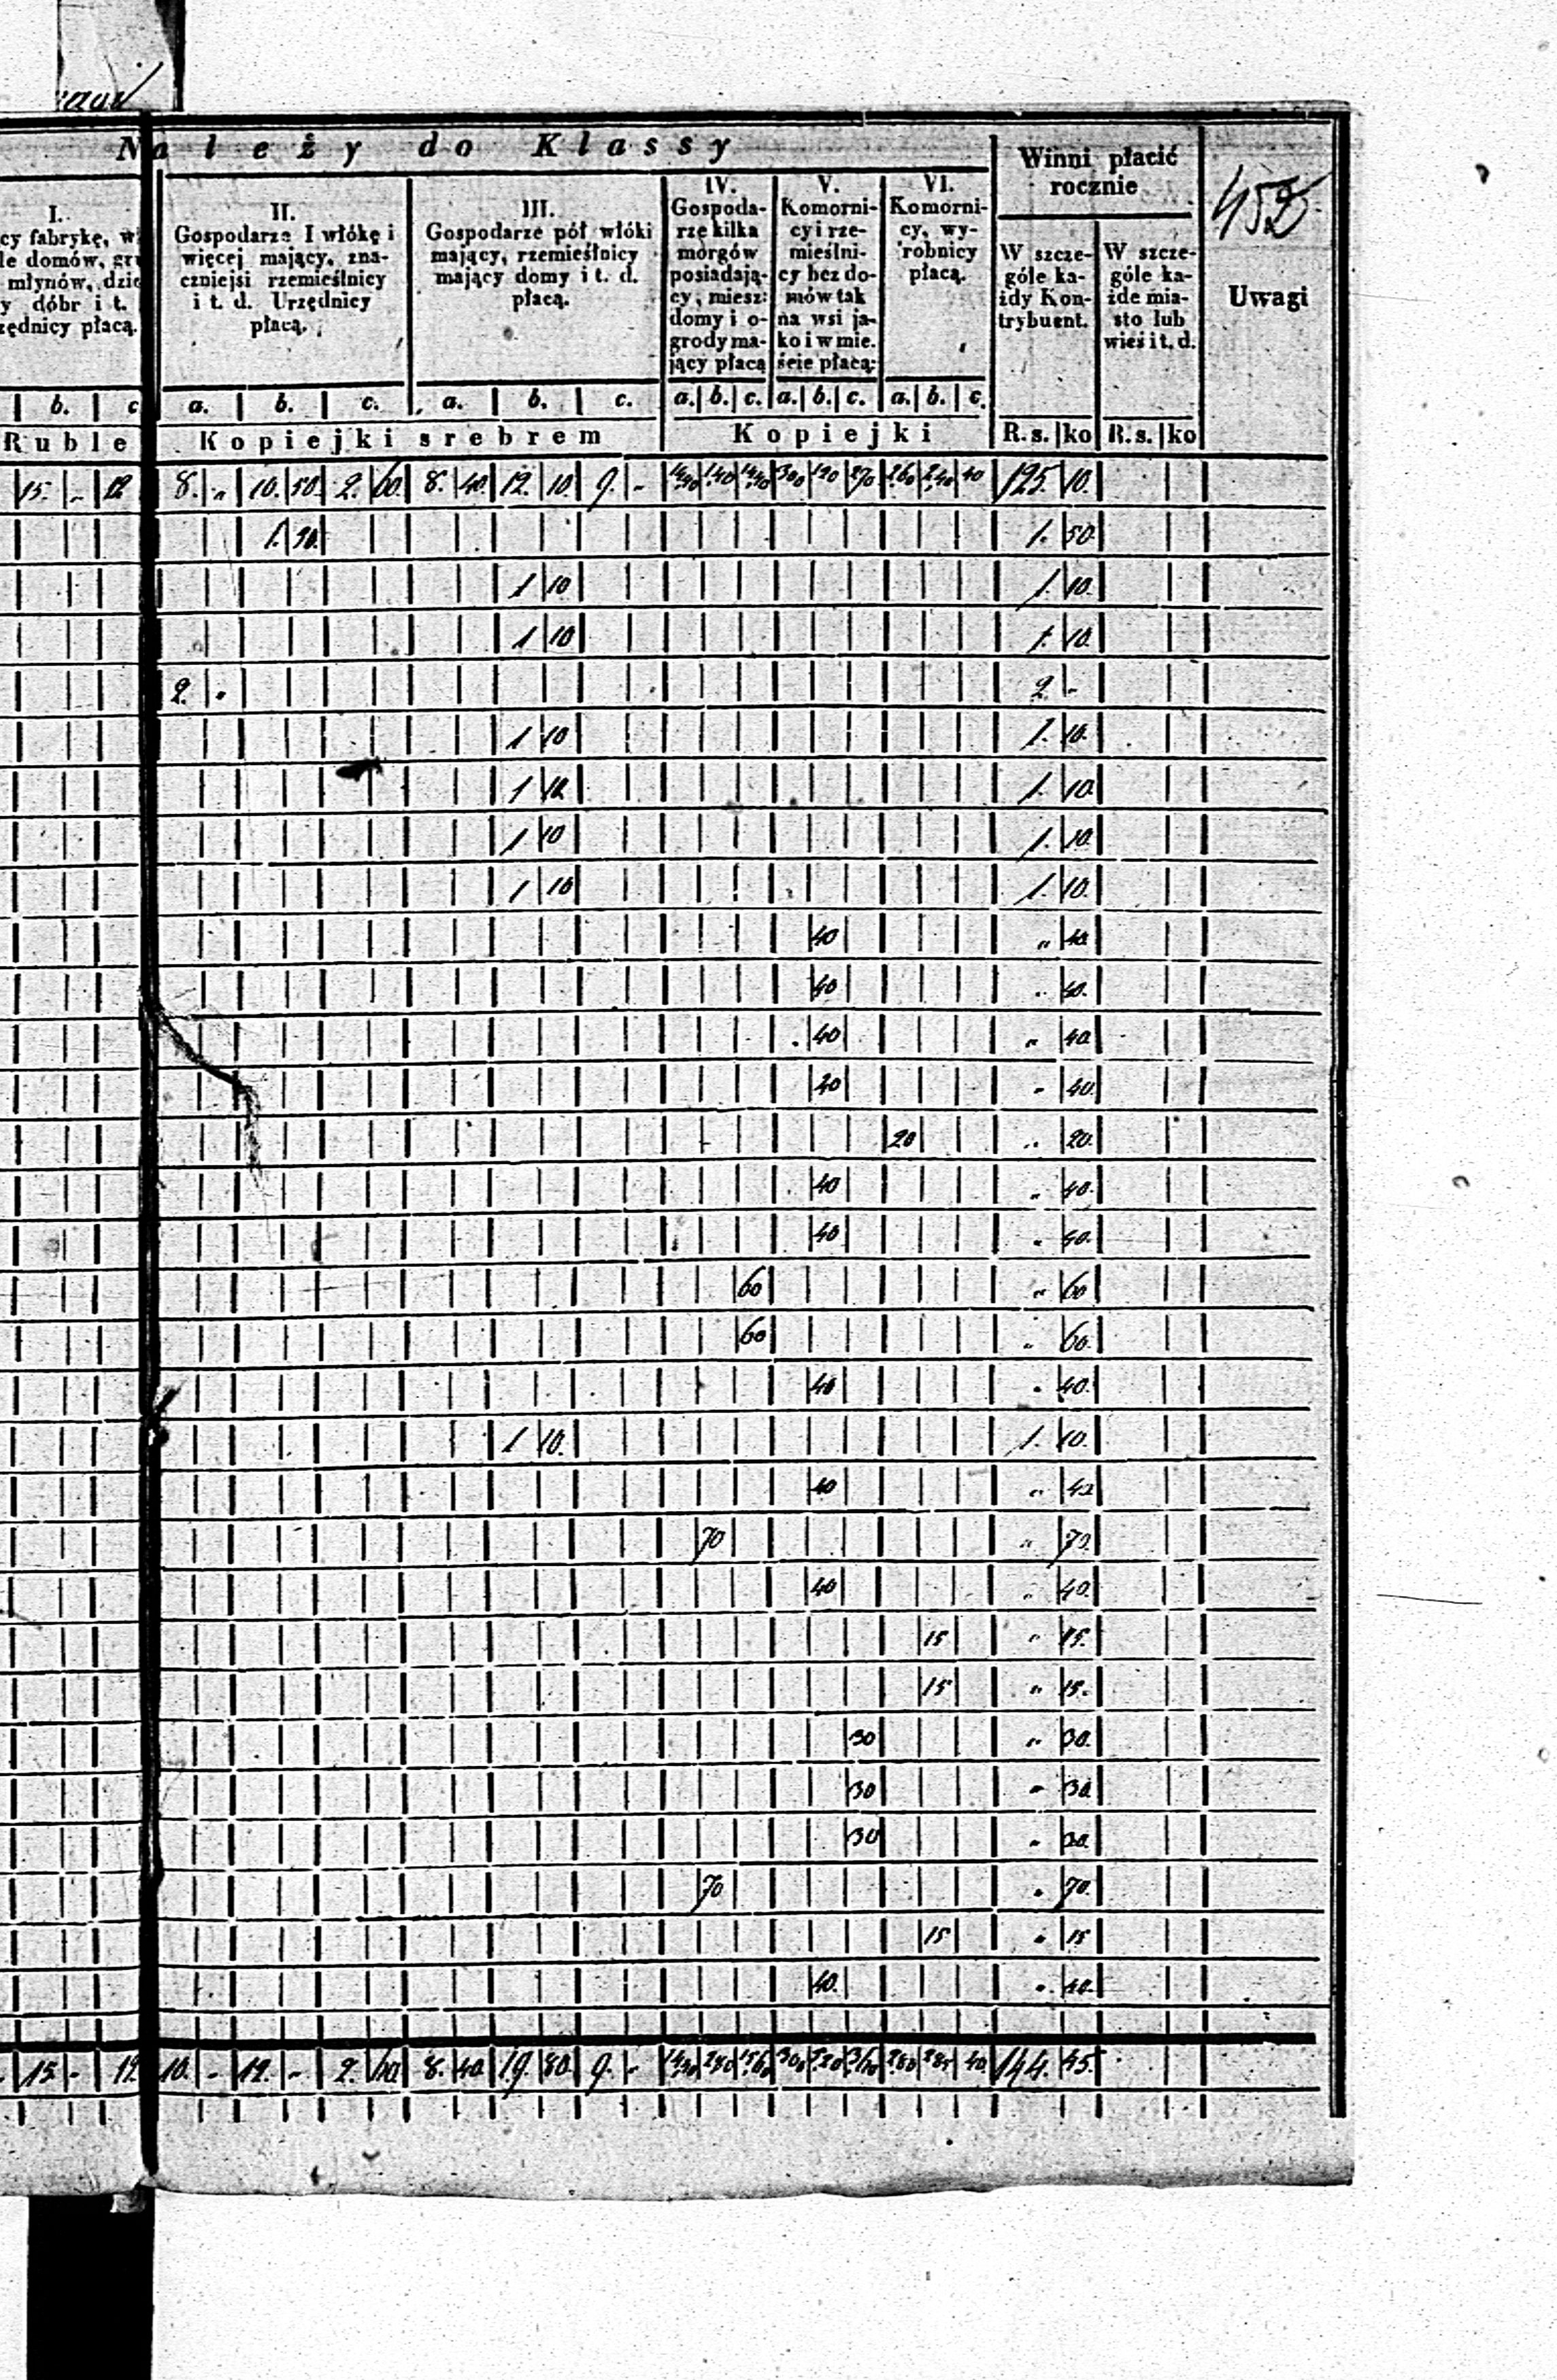 Należy do Klassy
Winni płacić
rocznie
452
I.
cy fabrykę, w
le domów, gru
młynów, dzie
y dóbr i t.
zędnicy płacą.
II.
Gospodarze I włókę i
więcej mający, zna-
czniejsi rzemieślnicy
i t. d. Urzędnicy
płacą.
III.
Gospodarze pół włóki
mający, rzemieślnicy
mający domy i t. d.
płacą.
IV.
Gospoda-
rze kilka
morgów
posiadają-
cy, miesz:
domy i o-
grody ma-
jący płacą
V.
Komorni-
cy i rze-
mieślni-
cy bez do-
mów tak
na wsi ja-
ko i w mie.
ście płacą:
VI.
Komorni-
cy, wy-
robnicy
płacą.
W szcze-
góle ka-
żdy Kon-
trybuent.
W szcze-
góle ka-
żde mia-
sto lub
wieś i t. d.
Uwagi
b. c a. b. c. a. b. c. a. b. c. a. b. c. a. b. c.
Ruble Kopiejki srebrem Kopiejki R.s. ko R.s. ko
15. - 12 8. „ 10. 50. 2. 60. 8. 40. 12. 10. 9. - 40 125. 10.
1. 50. 1. 50.
1 10 1. 10.
1 10 1. 10.
2. - 2. -
1 10 1. 10.
1 10 1. 10
1 10 1. 10.
1 10 1. 10.
40 „ 40
40 „ 40.
40 „ 40.
40 „ 40.
20 „ 20.
40 „ 40.
40 „ 40.
60 „ 60
60 „ 60.
40 „ 40.
1 10. 1. 10.
40 „ 40
70 „ 70.
40 „ 40.
15 „ 15.
15 „ 15.
30 „ 30.
30 „ 30.
30 „ 30.
70 „ 70.
15 „ 15
40. „ 40.
15. - 12. 10. - 12. - 2. 60 8. 40. 19. 80. 9. - 40. 144. 45.